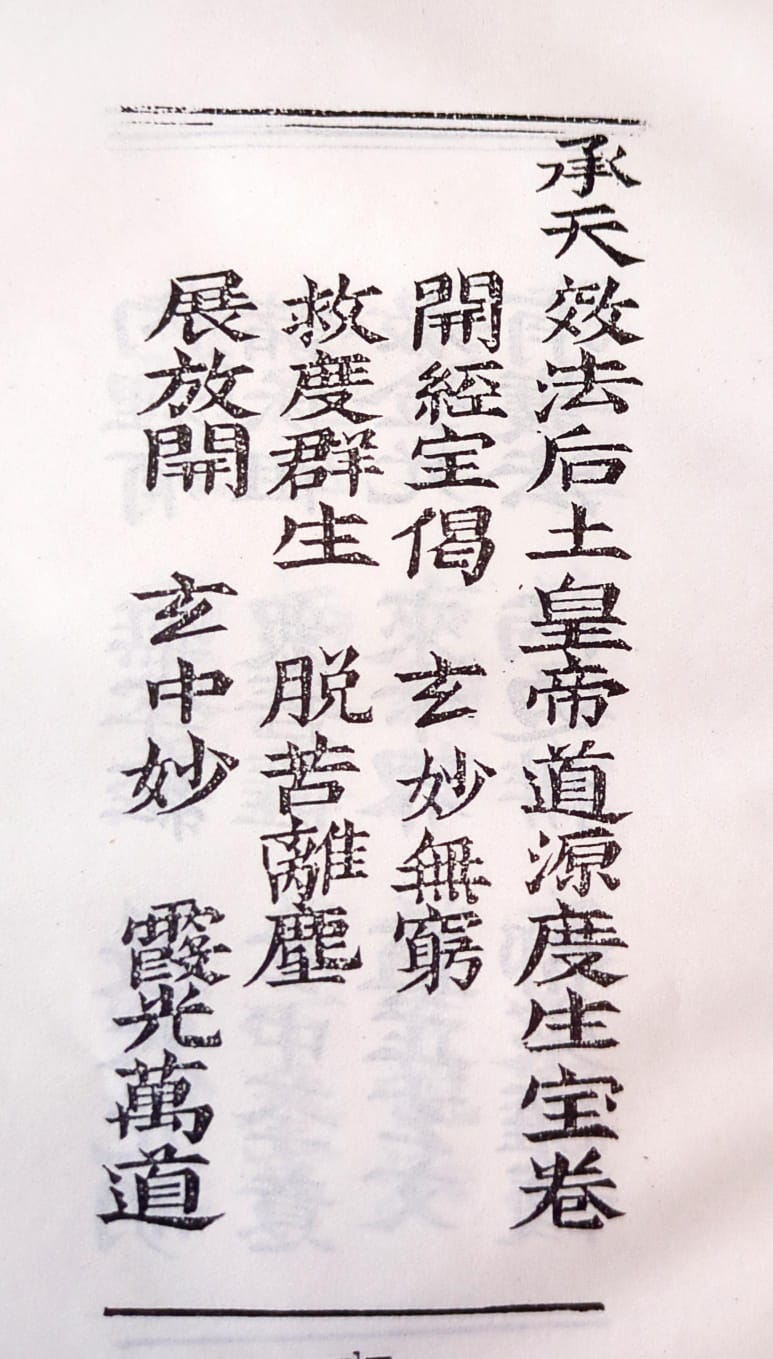 承天效法后土皇帝道源度生宝卷
開經宝偈 玄妙無窮
救度群生 脱苦離塵
展放開 玄中妙 霞光萬道